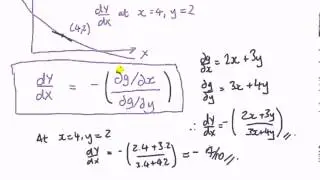 dy/dx at x=4, y=2
(4,2)
x
dy/dx = -(∂g/∂x / ∂g/∂y)
∂g/∂x = 2x+3y
∂g/∂y = 3x+4y
∴ dy/dx = -(2x+3y / 3x+4y)
At x=4, y=2
dy/dx = -(2.4+3.2 / 3.4+4.2) = -